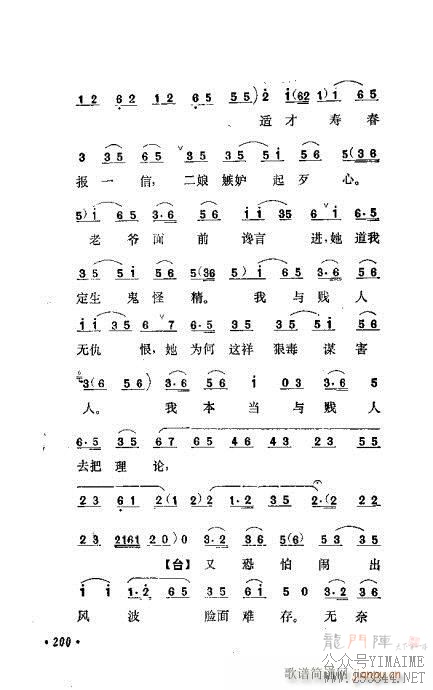 1 2 6 2 1 2 6 5 5 5) 2 i (62 1) i 6 5
适才寿春
3 3 5 6 5 3 5 5 i 5 6 5 (3 6
报一信,二娘嫉妒起歹心。
5) i 6 5 3·6 5 6 i i 3 5 i 6·5
老爷面前谗言进,她道我
3 5 5 i 5 6 5 (36) 5 1 6 5 3·6 5 6
定生鬼怪精。我与贱人
i i 3 5 i·6 7 6·5 3 5 5 i 5 6
无仇恨,她为何这祥狠毒谋害
3 (6 5 6) 3·6 5 6 i 0 3 3·6 5
人。我本当与贱人
6·5 3 5 6 7 6 5 4 6 4 3 2 3 5 5
去把理论,
2 3 6 1 2 (1 2) 1·2 3 5 2·(2 2 2
2 3 2161 2 0) 0 3·2 3 6 5 (6) 5 3 5
【台】又恐怕闹出
i i 1·2 6 5 3 5 6 i 5 0 3·6 5
风波脸面难存。无奈
· 200 ·
龍門陣
公众号YIMAIME
歌谱简谱网